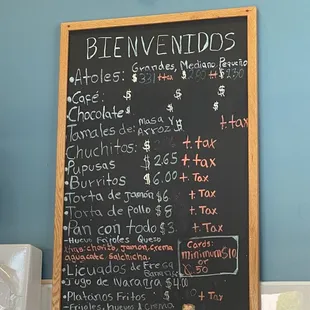 BIENVENIDOS
Grandes, Mediano, Pequeño
• Atoles: $3.31 +tax $2.00 +tax $1.50
• Café: $ $ $
• Chocolate $ $ $
Tamales de: masa y Arroz $ + tax
Chuchitos: $ + tax
• Pupusas $2.65 + tax
• Burritos $6.00 + Tax
• Torta de jamón $6 + Tax
• Torta de pollo $8 + Tax
• Pan con todo $3 + Tax
- Huevo Frijoles Queso
chorizo, Jamon, Crema
aguacate Salchicha.
Cards:
minimum $10
or
.50
• Licuados de Fresa
Jugo de Naranja $4.00
• Platanos Fritos $ + Tax
- Frijoles, huevo, Crema